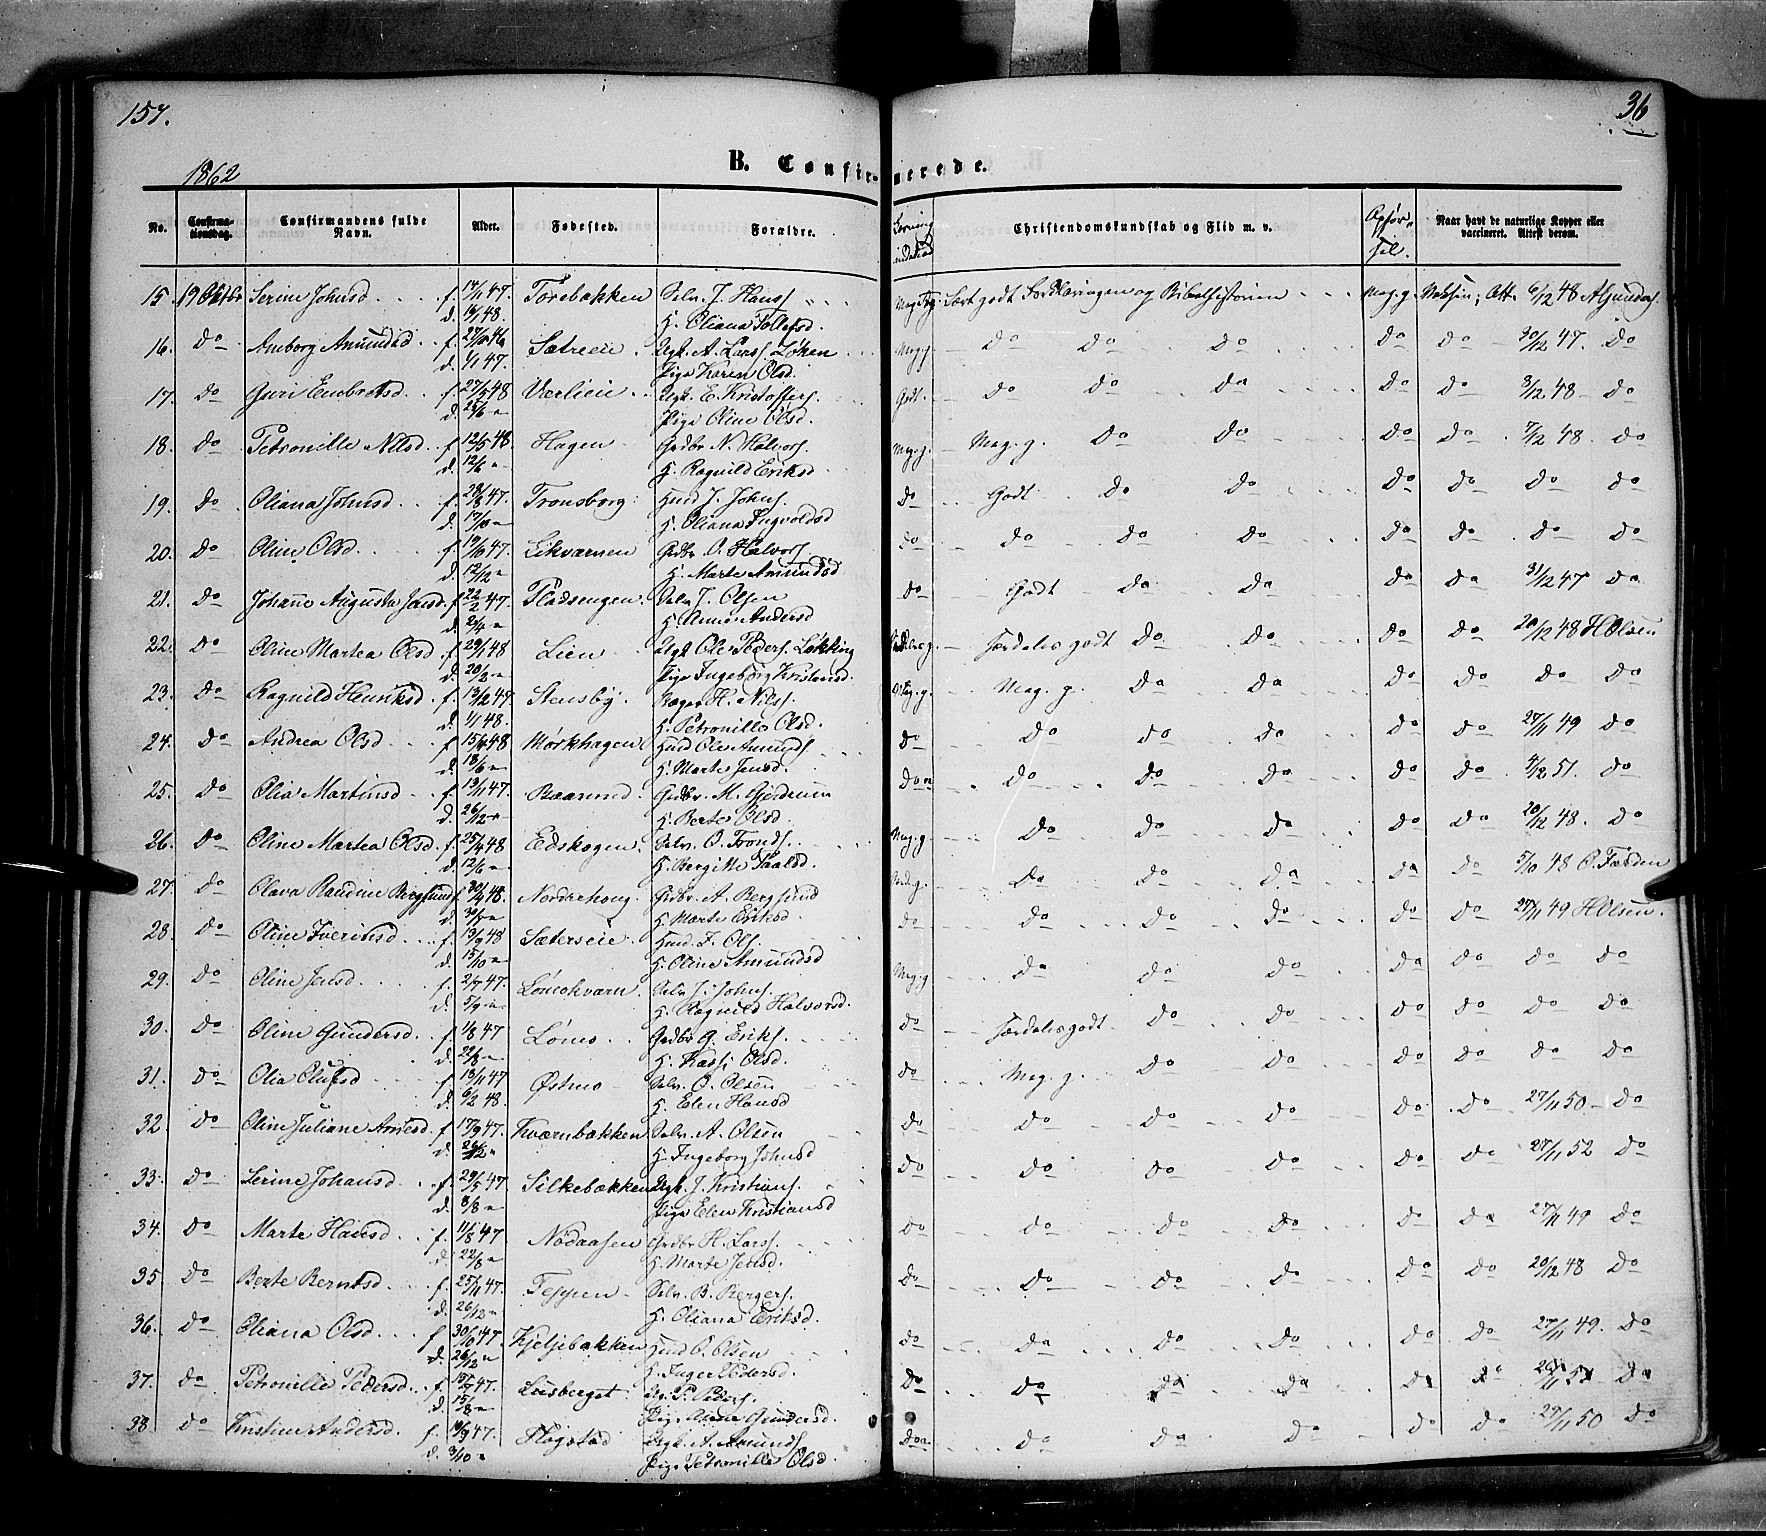 157.
36
1862
B. Confirmerede.
No. Confirmationsdag. Confirmandens fulde Navn. Alder. Fødested. Forældre. Christendomskundskab og Flid m. v. Opførsel. Naar havt de naturlige Kopper eller vaccineret. Attest derom.
15. 19 Oktbr Serine Johnsd. f. 17/11 47. Torebakken Selv. J. Hanss. Meg. g. Lært godt Forklaringen og Bibelhistorien Meg. g. Att. 6/12 48
d. 16/1 48. H. Oliana Tollefsd.
16. do Amborg Amundsd. f. 27/10 46 Sætreeie Ugk. A. Larss. Løken Meg. g. do do do do do 30/12 47. do
d. 1/1 47. Pige Karen Olsd.
17. do Guri Embretsd. f. 27/5 48 Værlieie Ugk. E. Kristoffers. Godt. do do do do do 8/12 48 do
d. 25/6 Pige Oline Olsd.
18. do Petronille Nilsd. f. 12/5 48 Hagen Grdbr N. Halvors. Meg. g. Meg. g. do do do do 7/12 48. do
d. 12/6 H. Ragnild Eriksd.
19. do Oliana Johnsd. f. 28/8 47. Tronsborg Husd J. Johns. do Godt do do do do do do
d. 17/10 H. Oliana Ingvoldsd
20. do Oline Olsd. f. 19/10 47. Likværnen Grdbr. O. Halvors. do do do do do do do do
d. 12/12 H. Marte Amundsd.
21. do Johanne Augusta Jensd. f. 22/2 47. Pladsengen. Selv. J. Olsen do Godt do do do do 31/12 47 do
d. 25/4 H. Anne Andersd
22. do Oline Martea Olsd f. 29/1 48 Lien Ugk. Ole Peders. Løkking Særdeles godt do do do do 20/12 48 H Olsen
d. 20/2 Pige Ingeborg Kristensd.
23. do Ragnild Henriksd. f. 13/12 47. Stensby Bager H. Nilss. Meg. g. Meg. g. do do do do do do
d. 1/1 48. H. Petronille Olsd.
24. do Andrea Olsd f. 15/4 48 Mørkhagen Husd Ole Amunds. do do do do do do 27/11 49 do
d. 18/6 H. Marte Jensd.
25. do Olia Martinsd f. 13/11 47. Baasrud. Grdbr. M. Gjerdrum do do do do do do 4/12 51. do
d. 26/12 H. Berte Olsd.
26. do Oline Martea Olsd. f. 25/4 48 Eidskogen. Selv. O. Tronds. Meg. g. do do do do do 20/12 48. do
d. 12/6 H. Bergitte Paalsd.
27. do Olava Randine Bergsund f. 20/4 48. Nordrehoug. Grdbr. A. Bergsund Meg. g. do do do do do 5/10 48 O. Færden
d. 30/5 H. Marte Eriksd.
28. do Oline Iverinsd. f. 13/9 48 Sæterseie Husd. I. Ols. do do do do do do 27/11 49 H Olsen.
d. 15/10 H. Oline Amundsd
29. do Oline Jensd. f. 2/7 47. Lømokværn. Selv J. Johns. Meg. g do do do do do do do
d. 5/9 H. Ragnild Halvorsd.
30. do Oline Gundersd. f. 1/8 47 Lømo. Grdbr G. Eriks. do Særdeles godt. do do do do do do
d. 29/8 H. Kari Olsd.
31. do Olia Olufsd f. 13/11 47 Østmo Selv. O. Olsen do Meg. g. do do do do do do
d. 6/2 48. H. Elen Hansd
32 do Oline Juliane Arnesd. f. 17/9 47. Kværnbækken. Selv. A. Olsen do do do do do do 27/11 50 do
d. 26/12 H. Ingeborg Johnsd
33. do Serine Johansd. f. 29/5 47 Silkebækken Ugk. J. Kristians. do do do do do do 27/11 52 do
d. 8/8 Pige Elen Kristiansd
34. do Marte Hansd. f. 11/8 47 Nodaasen Grdbr. H. Larss. do do do do do do 27/11 49 do
d. 22/8 H. Marte Jensd.
35 do Berte Berntsd. f. 25/11 47. Teppen Selv. B. Bergers. do do do do do do 20/12 48 do
d. 26/12 H. Oliana Eriksd.
36. do Oliana Olsd. f. 30/10 47 Kjeljebakken Husd O. Olsen do do do do do do 27/11 49. do
d. 26/12 H. Inger Pedersd.
37. do Petronille Pedersd. f. 47. Lusberget P. Peders. do do do do do do do
d. 15/8 Pige Oline Gundersd.
38 do Kristine Andersd. f. 19/9 47. Flogstad Ugk. A. Amunds. do do do do do do 27/11 50 do
d. 3/10 Pige Petronille Olsd.